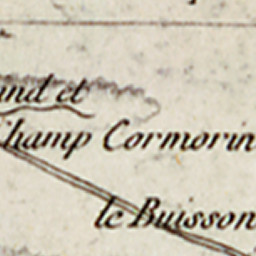 et
Champ Cormorin
le Buisson